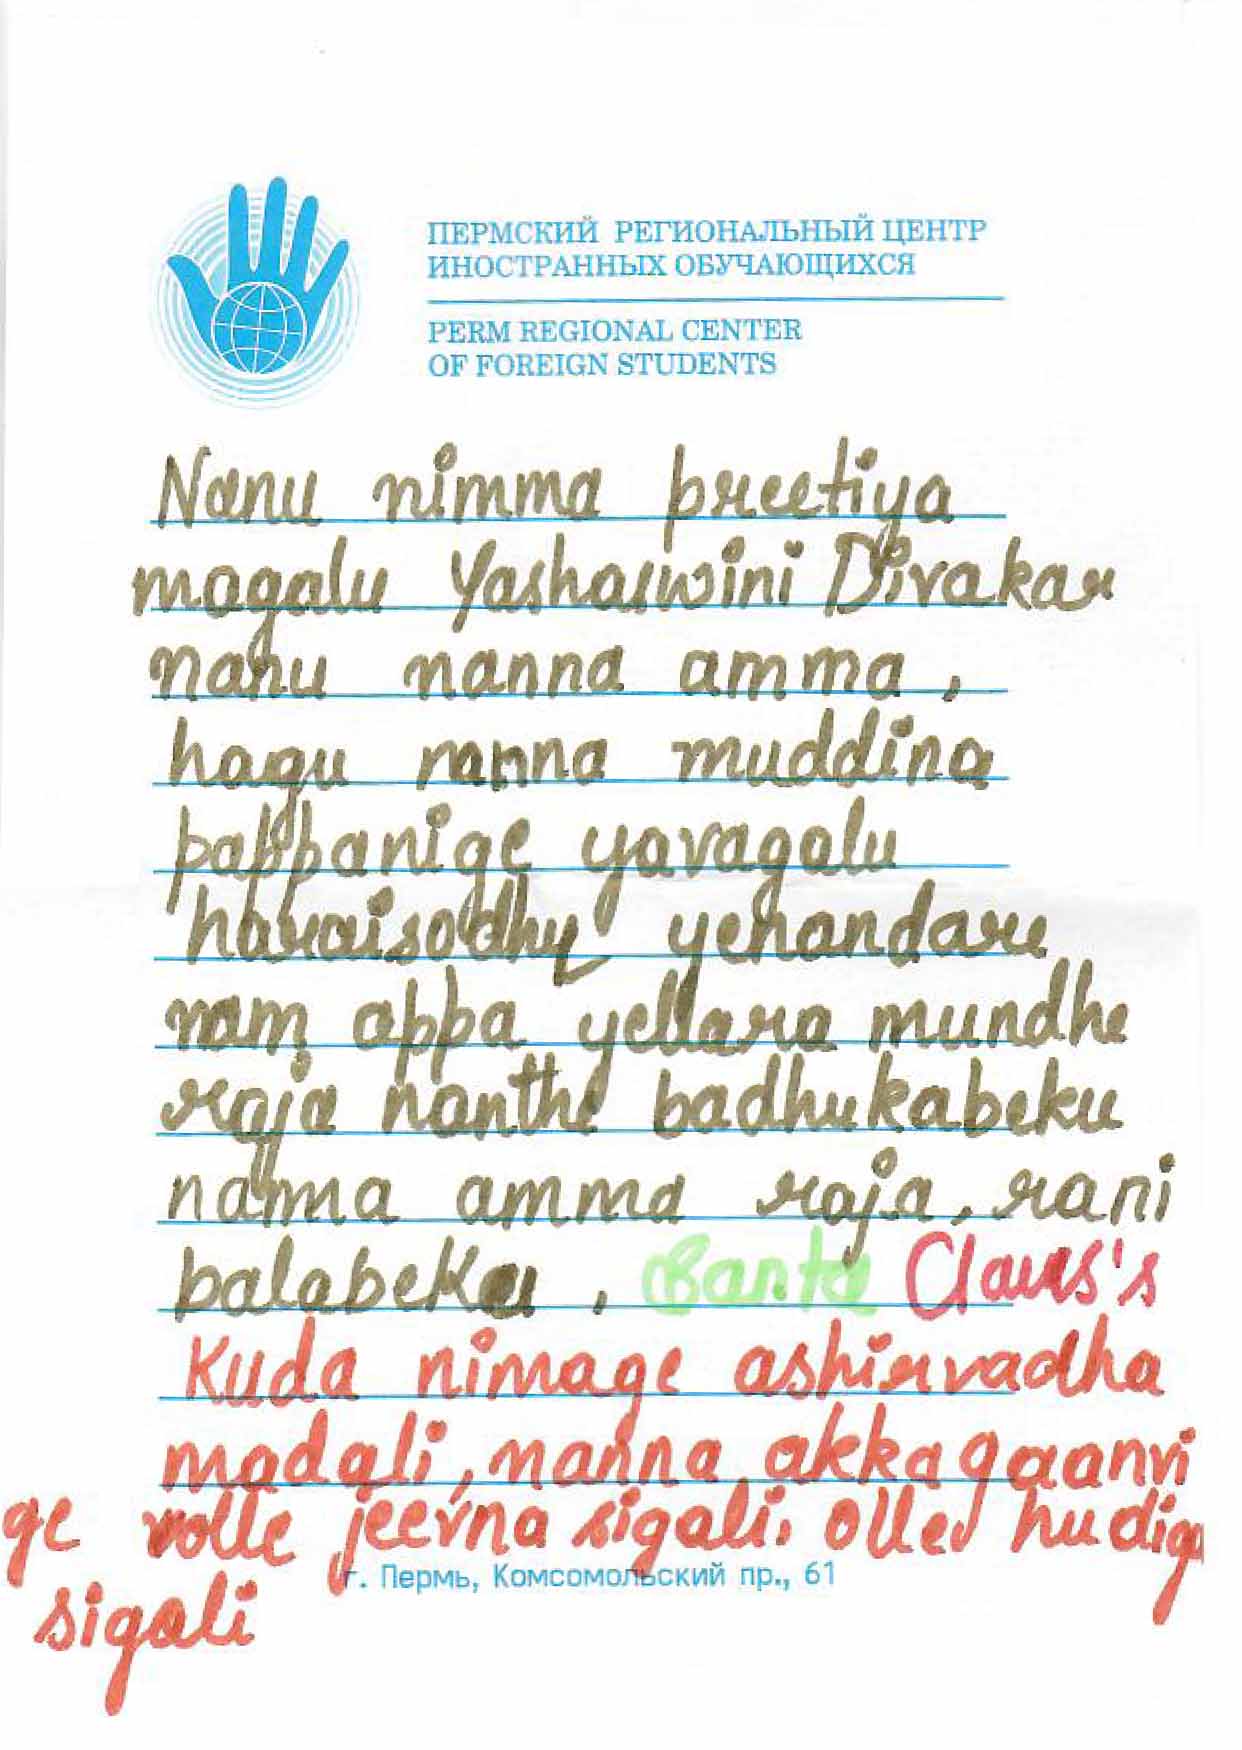 ПЕРМСКИЙ РЕГИОНАЛЬНЫЙ ЦЕНТР
ИНОСТРАННЫХ ОБУЧАЮЩИХСЯ
PERM REGIONAL CENTER
OF FOREIGN STUDENTS
Nanu nimma preetiya
magalu Yashaswini Divakar
nanu nanna amma,
hagu nanna muddina
pappanige yavagalu
haraisodhu yenandare
nam appa yellara mundhe
raja nanthe badhukabeku
namma amma raja, rani
balabeku, Santa Claus's
Kuda nimage ashirvadha
madali, nanna akka gaanvi
ge volle jeevna sigali. olled hudiga
г. Пермь, Комсомольский пр., 61
sigali